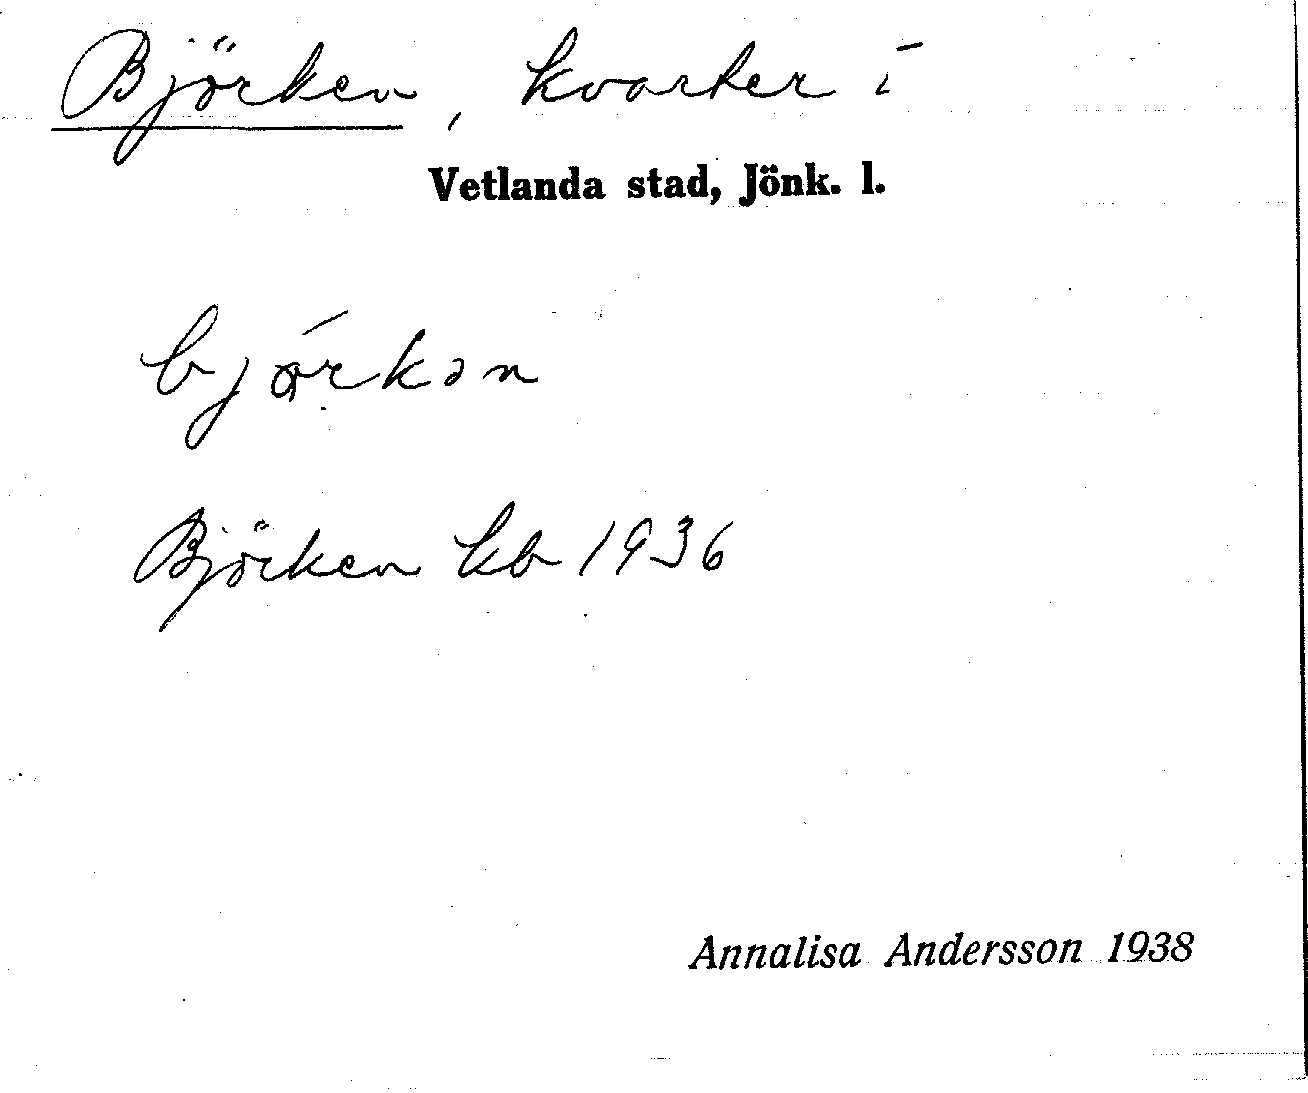 Björken, kvarter i
Vetlanda stad, Jönk. l.
bjǿrkən
Björken kb 1936
Annalisa Andersson 1938